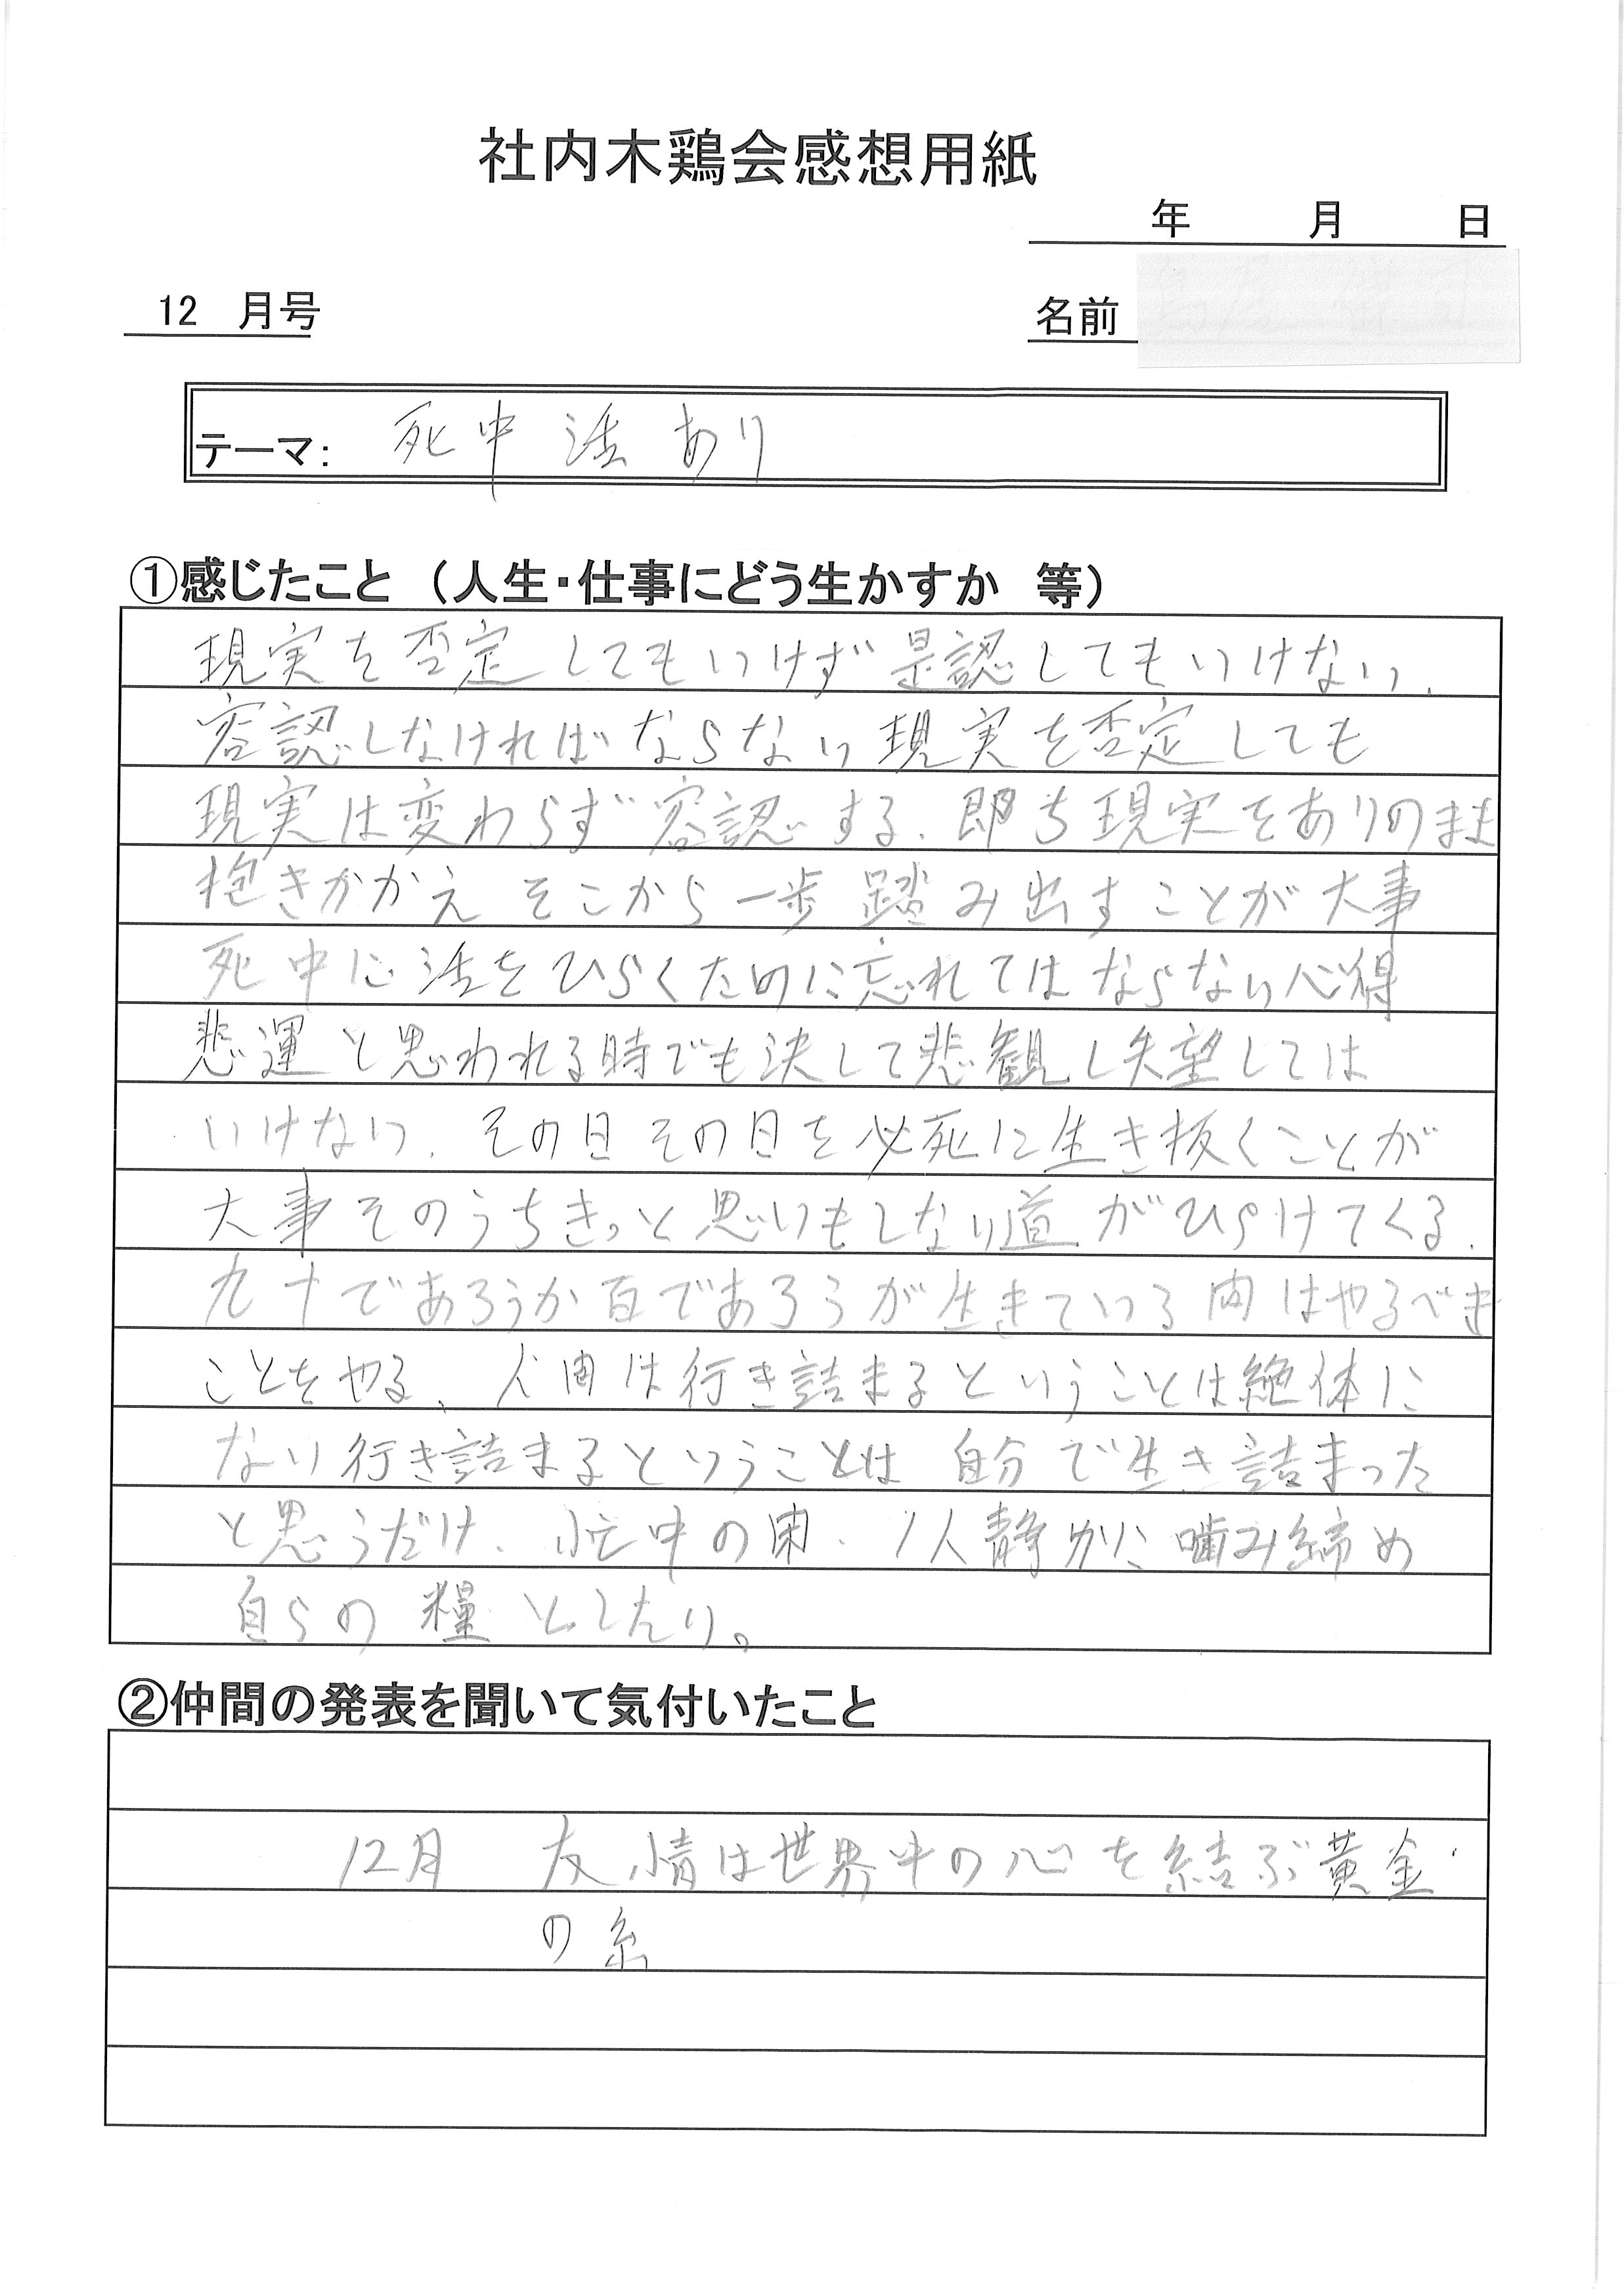 社内木鶏会感想用紙
年 月 日
12 月号
名前
テーマ: 死中活あり
①感じたこと（人生・仕事にどう生かすか 等）
現実を否定してもいけず是認してもいけない、
容認しなければならない現実を否定しても
現実は変わらず容認する、即ち現実をありのまま
抱きかかえ そこから一歩踏み出すことが大事
死中に活をひらくために忘れてはならない心得
悲運と思われる時でも決して悲観し失望しては
いけない、その日その日を必死に生き抜くことが
大事そのうちきっと思いもしない道がひらけてくる、
九十であろうが百であろうが生きている間はやるべき
ことをやる、人間は行き詰まるということは絶体に
ない行き詰まるということは自分で生き詰まった
と思うだけ、忙中の閑、1人静かに噛み締め
自らの糧としたい。
②仲間の発表を聞いて気付いたこと
12月 友情は世界中の心を結ぶ黄金
の糸